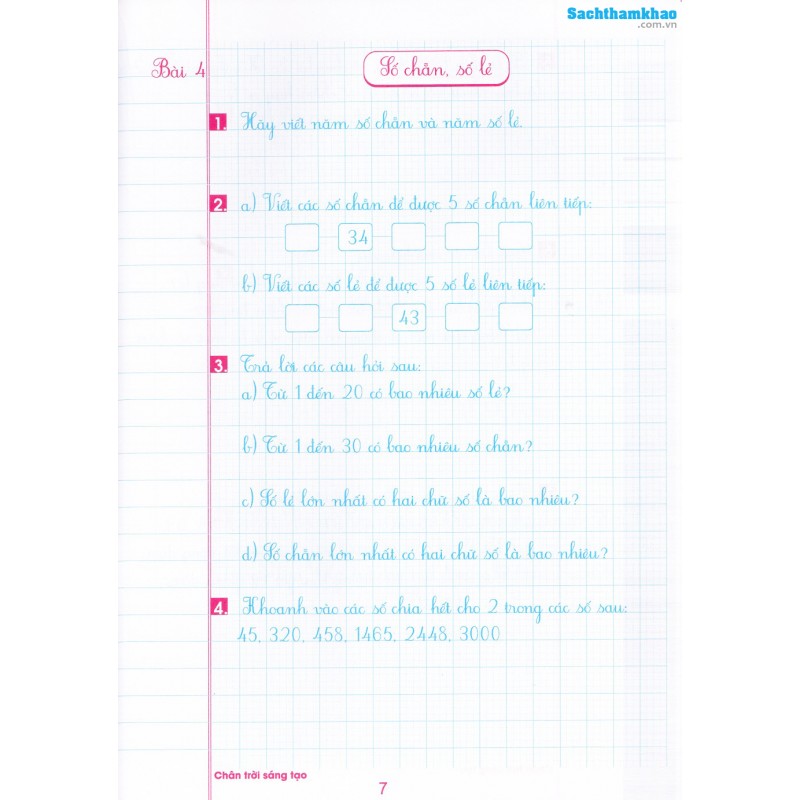 Sachthamkhao
.com.vn
Bài 4
Số chẵn, số lẻ
1. Hãy viết năm số chẵn và năm số lẻ.
2. a) Viết các số chẵn để được 5 số chẵn liên tiếp:
34
b) Viết các số lẻ để được 5 số lẻ liên tiếp:
43
3. Trả lời các câu hỏi sau:
a) Từ 1 đến 20 có bao nhiêu số lẻ?
b) Từ 1 đến 30 có bao nhiêu số chẵn?
c) Số lẻ lớn nhất có hai chữ số là bao nhiêu?
d) Số chẵn lớn nhất có hai chữ số là bao nhiêu?
4. Khoanh vào các số chia hết cho 2 trong các số sau:
45, 320, 458, 1465, 2448, 3000
Chân trời sáng tạo
7